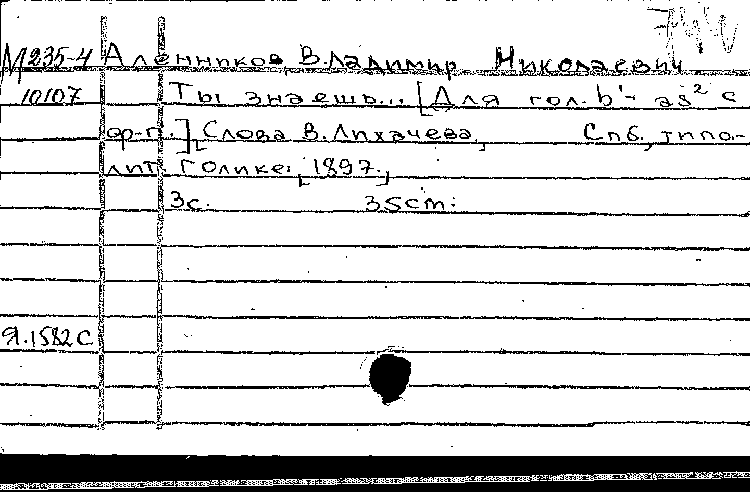 М 235-4 Аленников, Владимир Николаевич
10107 Ты знаешь... [Для гол. b¹- as² с
ф-п.], Слова В. Лихачева, Спб., типо-
лит. Голике, [1897.]
3с. 35cm.
Я.1582 С